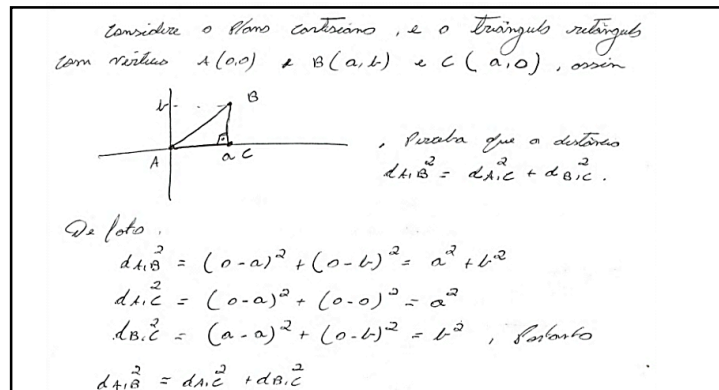 Considere o plano cartesiano, e o triângulo retângulo
com vértices A(0,0) e B(a,b) e C(a,0), assim
b
B
A
a C
, Perceba que a distância
dA,B² = dA,C² + dB,C².
De fato,
dA,B² = (0-a)² + (0-b)² = a² + b²
dA,C² = (0-a)² + (0-0)² = a²
dB,C² = (a-a)² + (0-b)² = b², Portanto
dA,B² = dA,C² + dB,C²